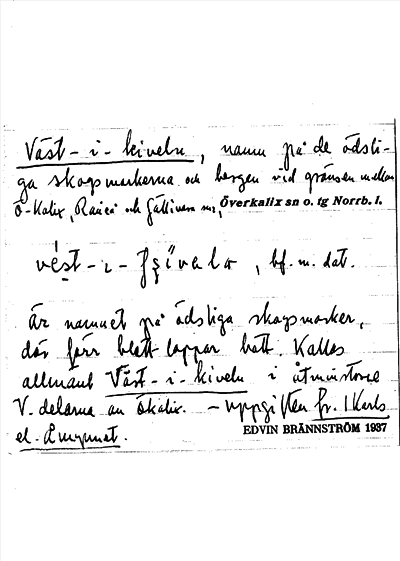 Väst-i-kiveln, namn på de ödsli-
ga skogsmarkerna och bergen vid gränsen mellan
Ö-Kalix, Råneå och Gällivare snr, Överkalix sn o. tg Norrb. l.
vést-i- , bf. m. dat.
Är namnet på ödsliga skogsmarker,
där förr blott lappar bott. Kallas
allmänt Väst-i-kiveln i åtminstone
V. delarna av Ökalix. – uppgiften fr. 1 Karls
el.
EDVIN BRÄNNSTRÖM 1937